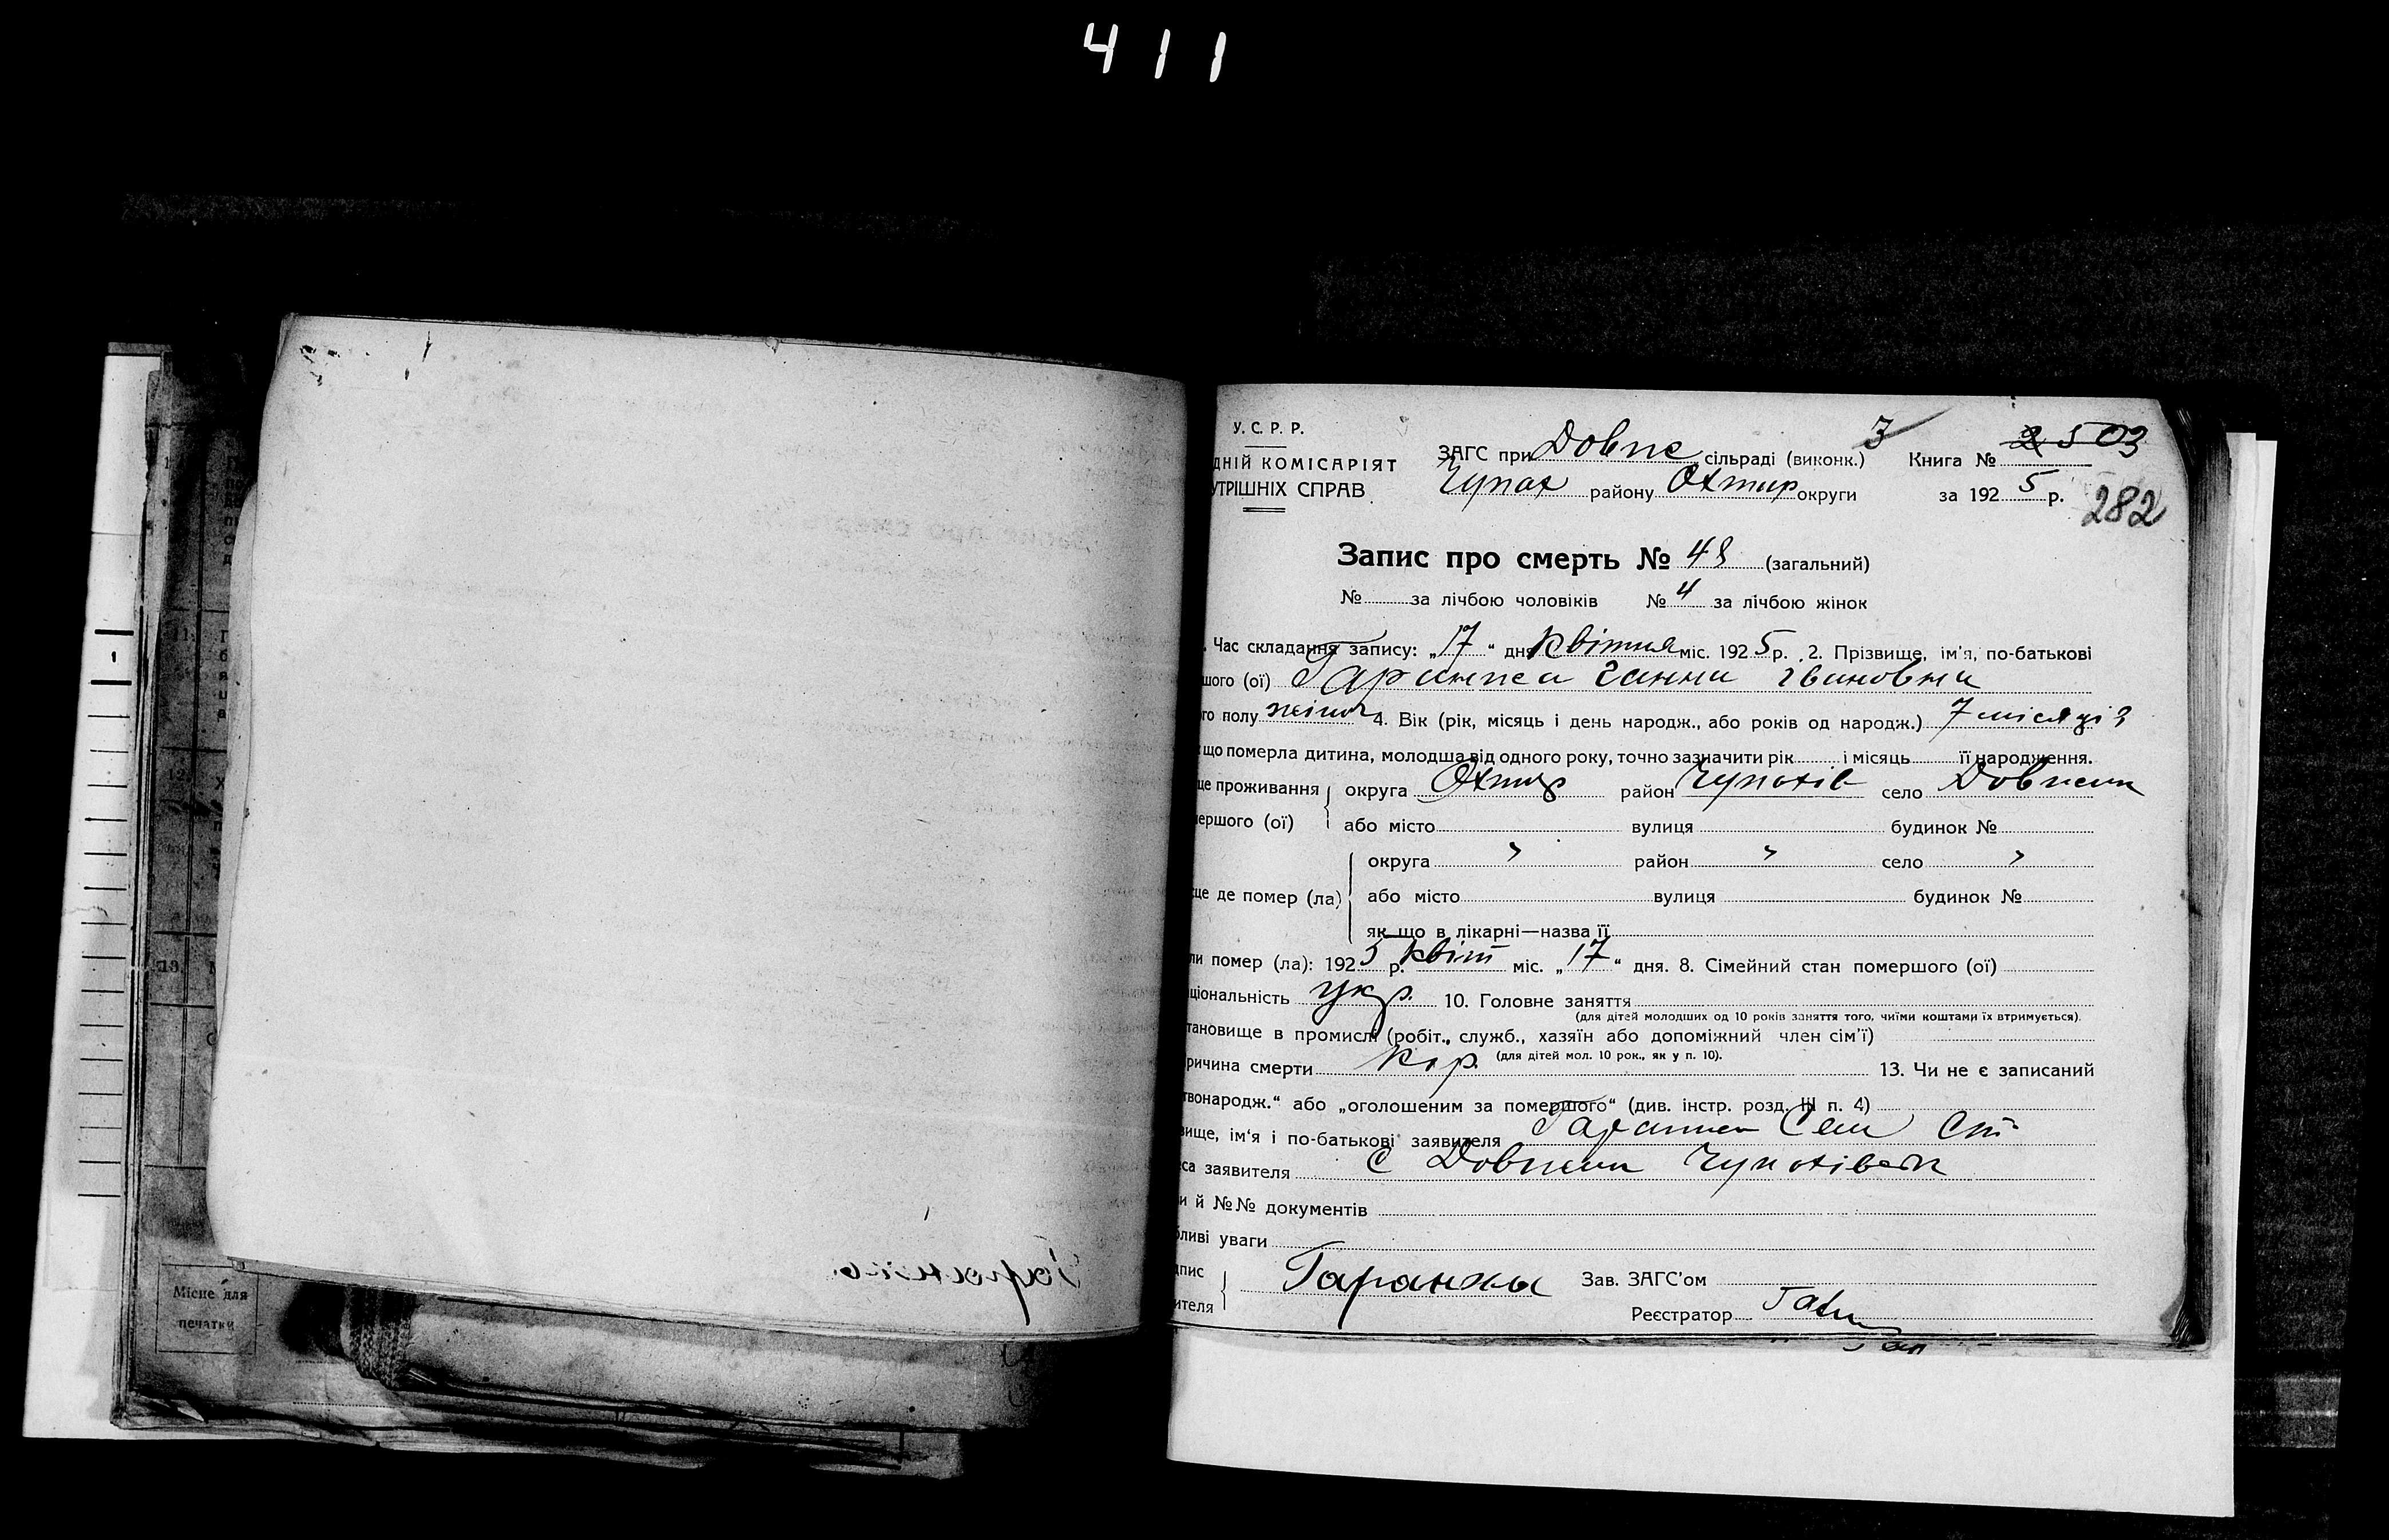 411
У. С. Р. Р.
ДНІЙ КОМІСАРІЯТ
УТРІШНІХ СПРАВ
ЗАГС при Довже сільраді (виконк.) 3 Книга № 2 5 03
Чупах району Охтир округи за 192 5 р.
282
Запис про смерть № 48 (загальний)
№ за лічбою чоловіків № 4 за лічбою жінок
Час складання запису: „ 17 “ дня квітня міс. 192 5 р. 2. Прізвище, ім'я, по-батькові
шого (ої) Гаранжа Ганна Івановна
го полу жіноч 4. Вік (рік, місяць і день народж., або років од народж.) 7 місяців
що померла дитина, молодша від одного року, точно зазначити рік і місяць її народження.
це проживання округа Охтир район Чупахів село Довжик
мершого (ої) або місто вулиця будинок №
округа " район " село "
ще де помер (ла) або місто вулиця будинок №
як що в лікарні—назва її
ли помер (ла): 192 5 р. квіт міс. „ 17 “ дня. 8. Сімейний стан помершого (ої)
ціональність укр. 10. Головне заняття
(для дітей молодших од 10 років заняття того, чиїми коштами їх втримується).
тановище в промислі (робіт., служб., хазяїн або допоміжний член сім'ї)
(для дітей мол. 10 рок., як у п. 10).
ричина смерти кор. 13. Чи не є записаний
твонародж.“ або „оголошеним за помершого“ (див. інстр. розд. III п. 4)
вище, ім'я і по-батькові заявителя Гаранжа Сем Ст
еса заявителя с Довжик Чупахівськ
и й №№ документів
бливі уваги
дпис Гаранжы Зав. ЗАГС'ом
ителя Реєстратор
Місце для
печатки